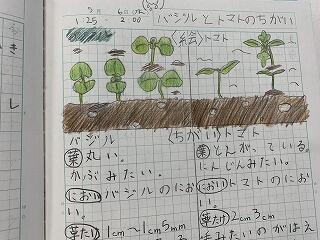 5月 6日(水)
1:25 - 2:00
バジルとトマトのちがい
〈絵〉トマト
バジル 〈ちがい〉トマト
葉 丸い。
かぶみたい。
におい バジルのにおい。
草たけ 1cm〜1cm5mm
葉 とんがっている。
にんじんみたい。
におい トマトのにおい。
草たけ 2cm3cm
毛みたいのがはえ
き
し